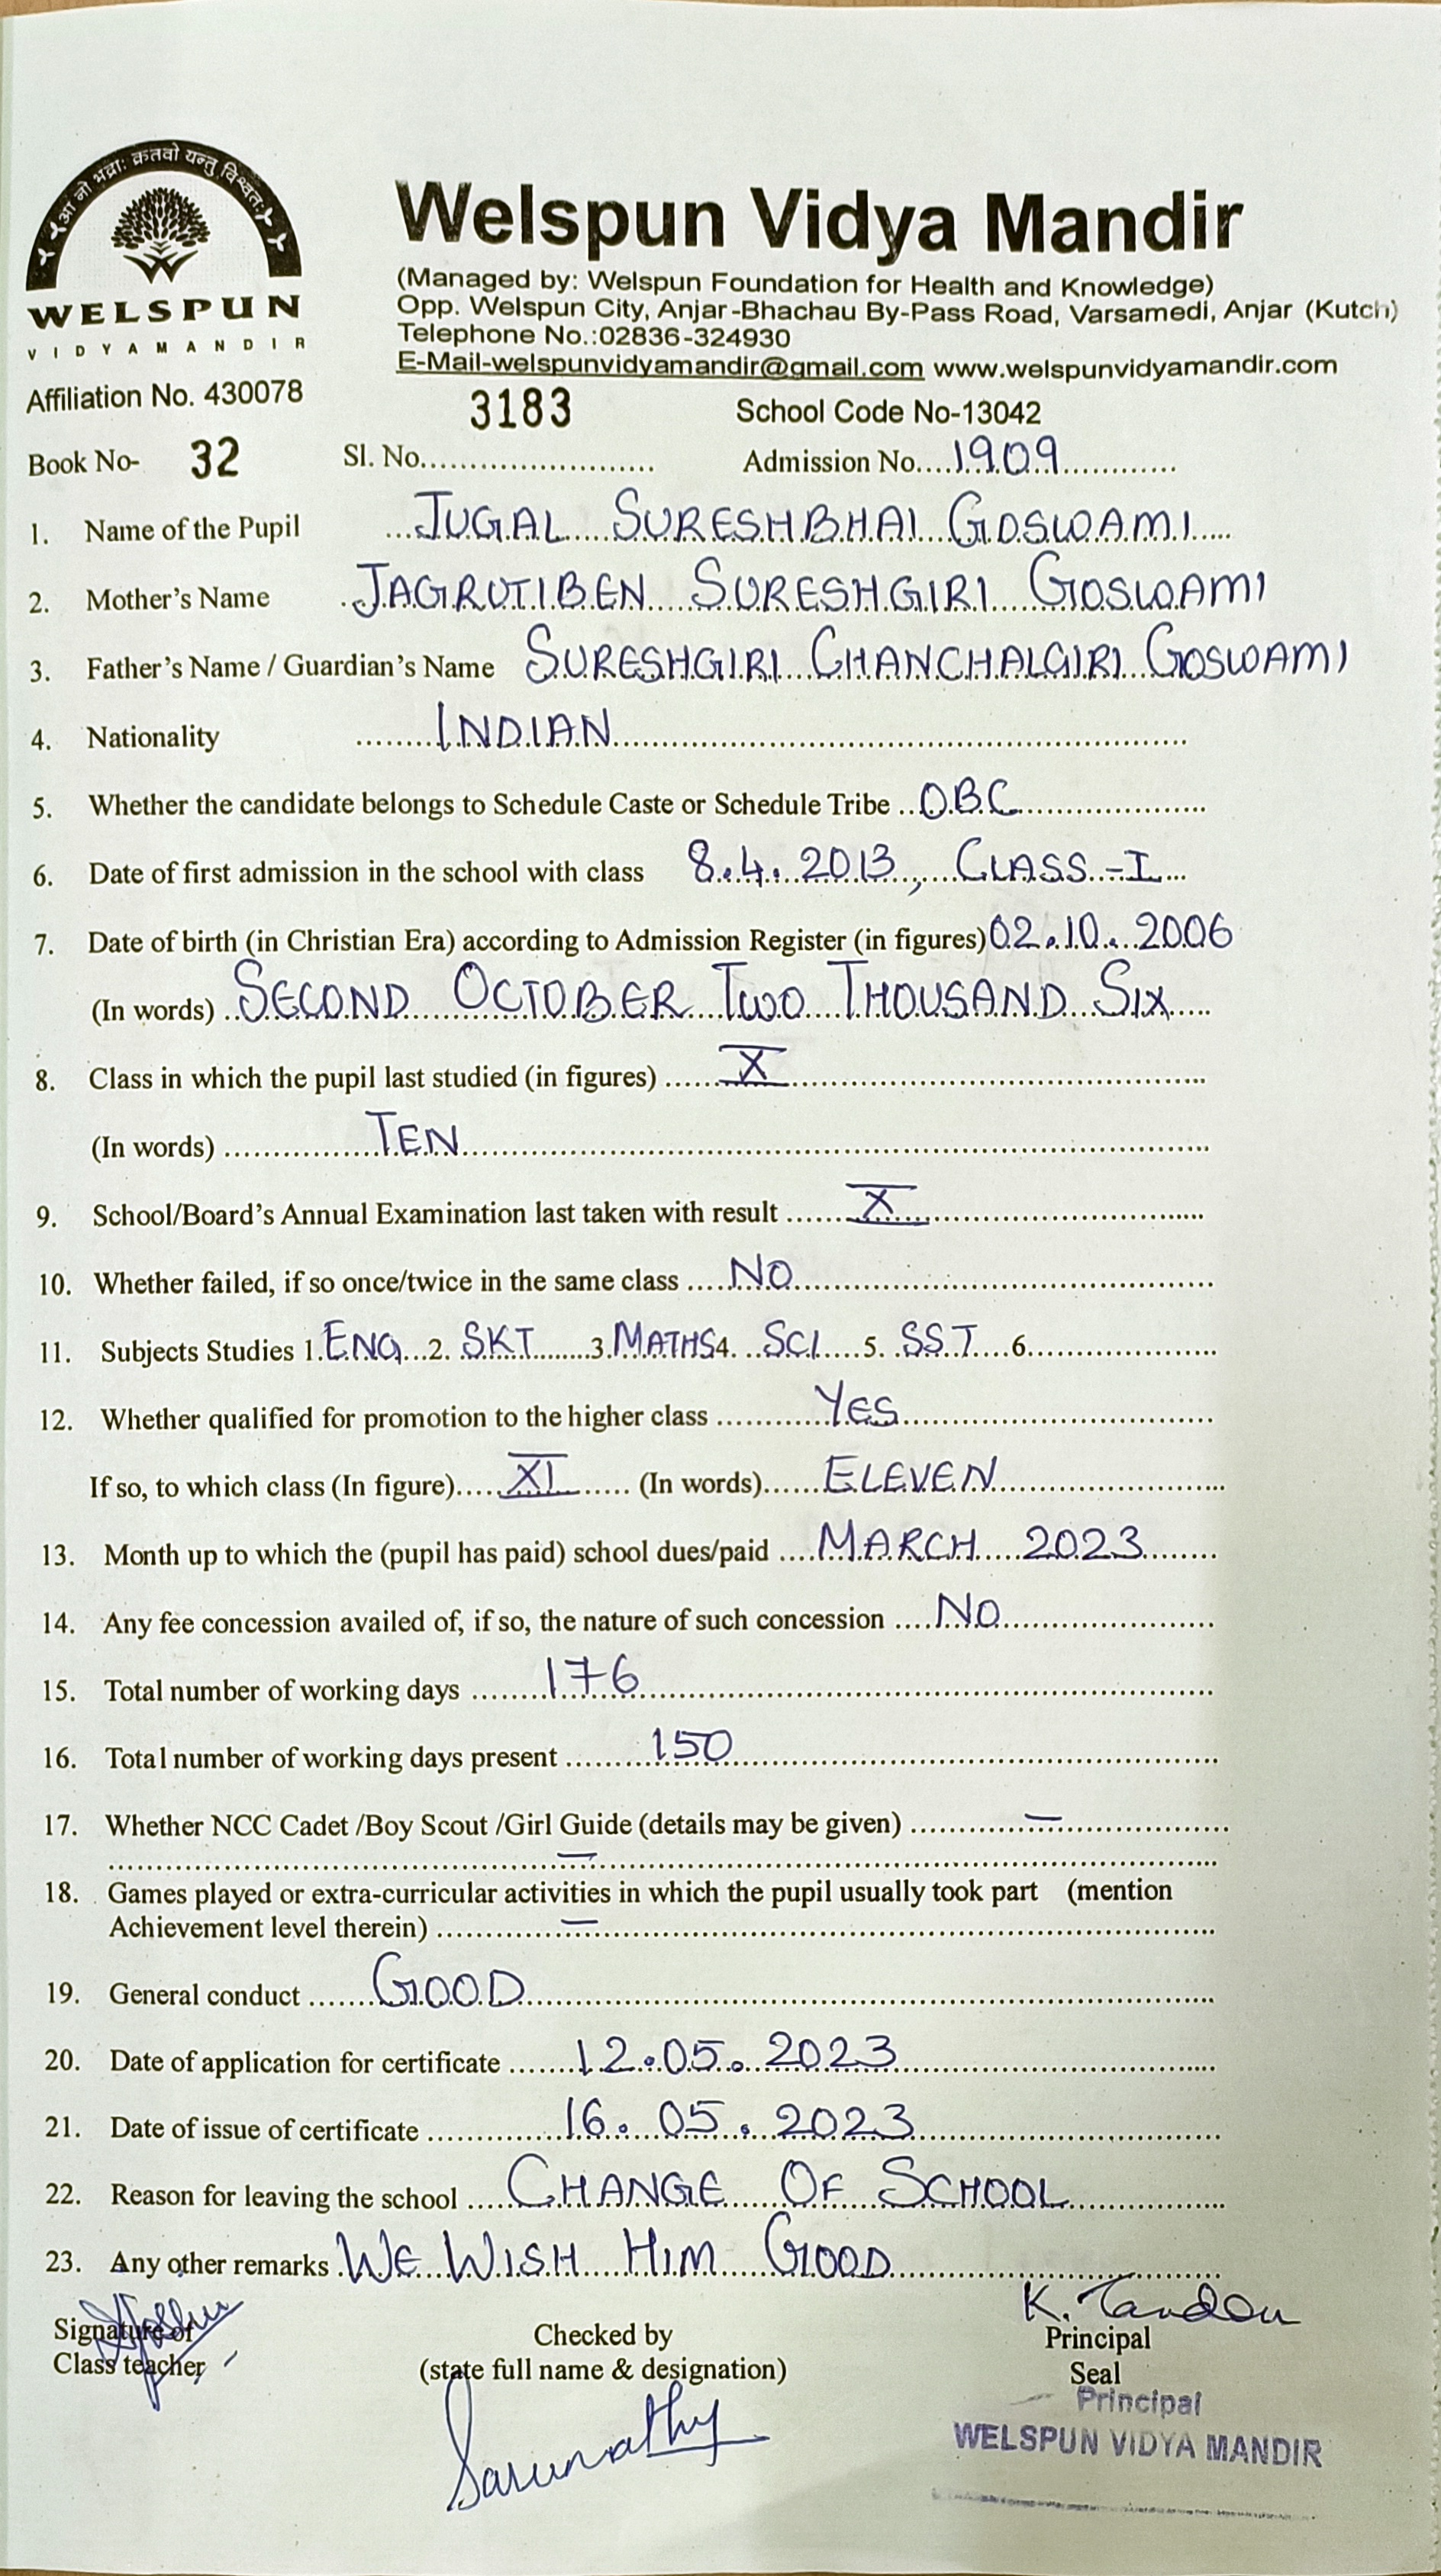 आ नो भद्राः क्रतवो यन्तु विश्वतः
WELSPUN
VIDYAMANDIR
Affiliation No. 430078
Welspun Vidya Mandir
(Managed by: Welspun Foundation for Health and Knowledge)
Opp. Welspun City, Anjar-Bhachau By-Pass Road, Varsamedi, Anjar (Kutch)
Telephone No.:02836-324930
E-Mail-welspunvidyamandir@gmail.com www.welspunvidyamandir.com
3183 School Code No-13042
Book No- 32 Sl. No. Admission No. 1909
1. Name of the Pupil JUGAL SURESHBHAI GOSWAMI
2. Mother's Name JAGRUTIBEN SURESHGIRI GOSWAMI
3. Father's Name / Guardian's Name SURESHGIRI CHANCHALGIRI GOSWAMI
4. Nationality INDIAN
5. Whether the candidate belongs to Schedule Caste or Schedule Tribe OBC
6. Date of first admission in the school with class 8.4.2013, CLASS-I
7. Date of birth (in Christian Era) according to Admission Register (in figures) 02.10.2006
(In words) SECOND OCTOBER TWO THOUSAND SIX
8. Class in which the pupil last studied (in figures) X
(In words) TEN
9. School/Board's Annual Examination last taken with result X
10. Whether failed, if so once/twice in the same class NO
11. Subjects Studies 1. ENG 2. SKT 3. MATHS 4. SCI 5. SST 6.
12. Whether qualified for promotion to the higher class YES
If so, to which class (In figure) XI (In words) ELEVEN
13. Month up to which the (pupil has paid) school dues/paid MARCH 2023
14. Any fee concession availed of, if so, the nature of such concession NO
15. Total number of working days 176
16. Total number of working days present 150
17. Whether NCC Cadet /Boy Scout /Girl Guide (details may be given) —
—
18. Games played or extra-curricular activities in which the pupil usually took part (mention
Achievement level therein) —
19. General conduct GOOD
20. Date of application for certificate 12.05.2023
21. Date of issue of certificate 16.05.2023
22. Reason for leaving the school CHANGE OF SCHOOL
23. Any other remarks WE WISH HIM GOOD
K. Tandon
Signature of Checked by Principal
Class teacher (state full name & designation) Seal
Principal
WELSPUN VIDYA MANDIR